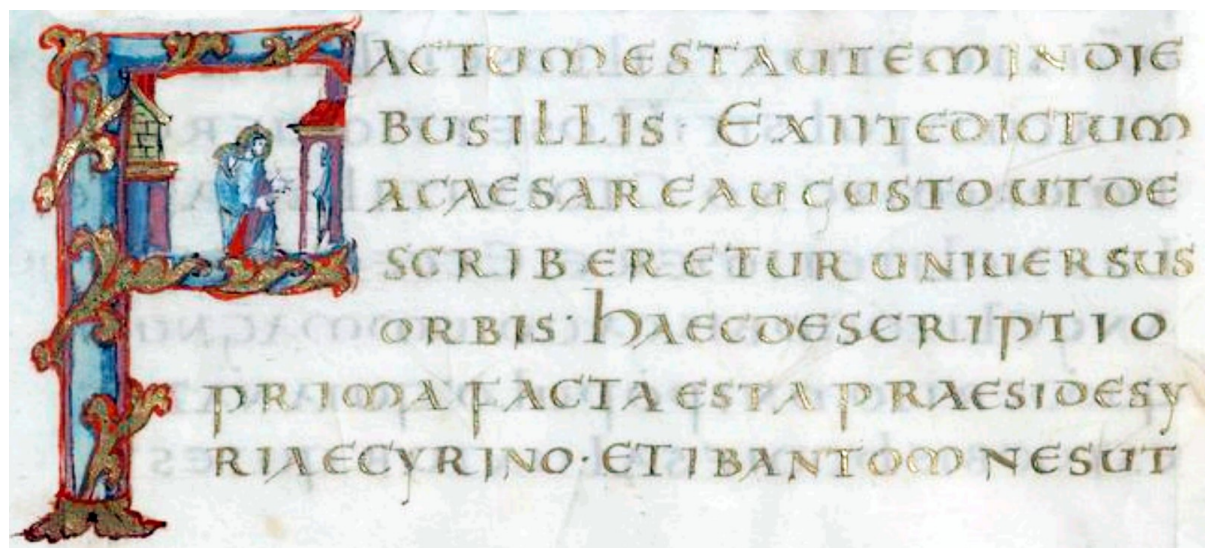 FACTUM EST AUTEM IN DIE
BUS ILLIS· EXIIT EDICTUM
A CAESARE AUGUSTO UT DE
SCRIBERETUR UNIUERSUS
ORBIS· HAEC DESCRIPTIO
PRIMA FACTA EST A PRAESIDE SY
RIAE CYRINO· ET IBANT OMNES UT